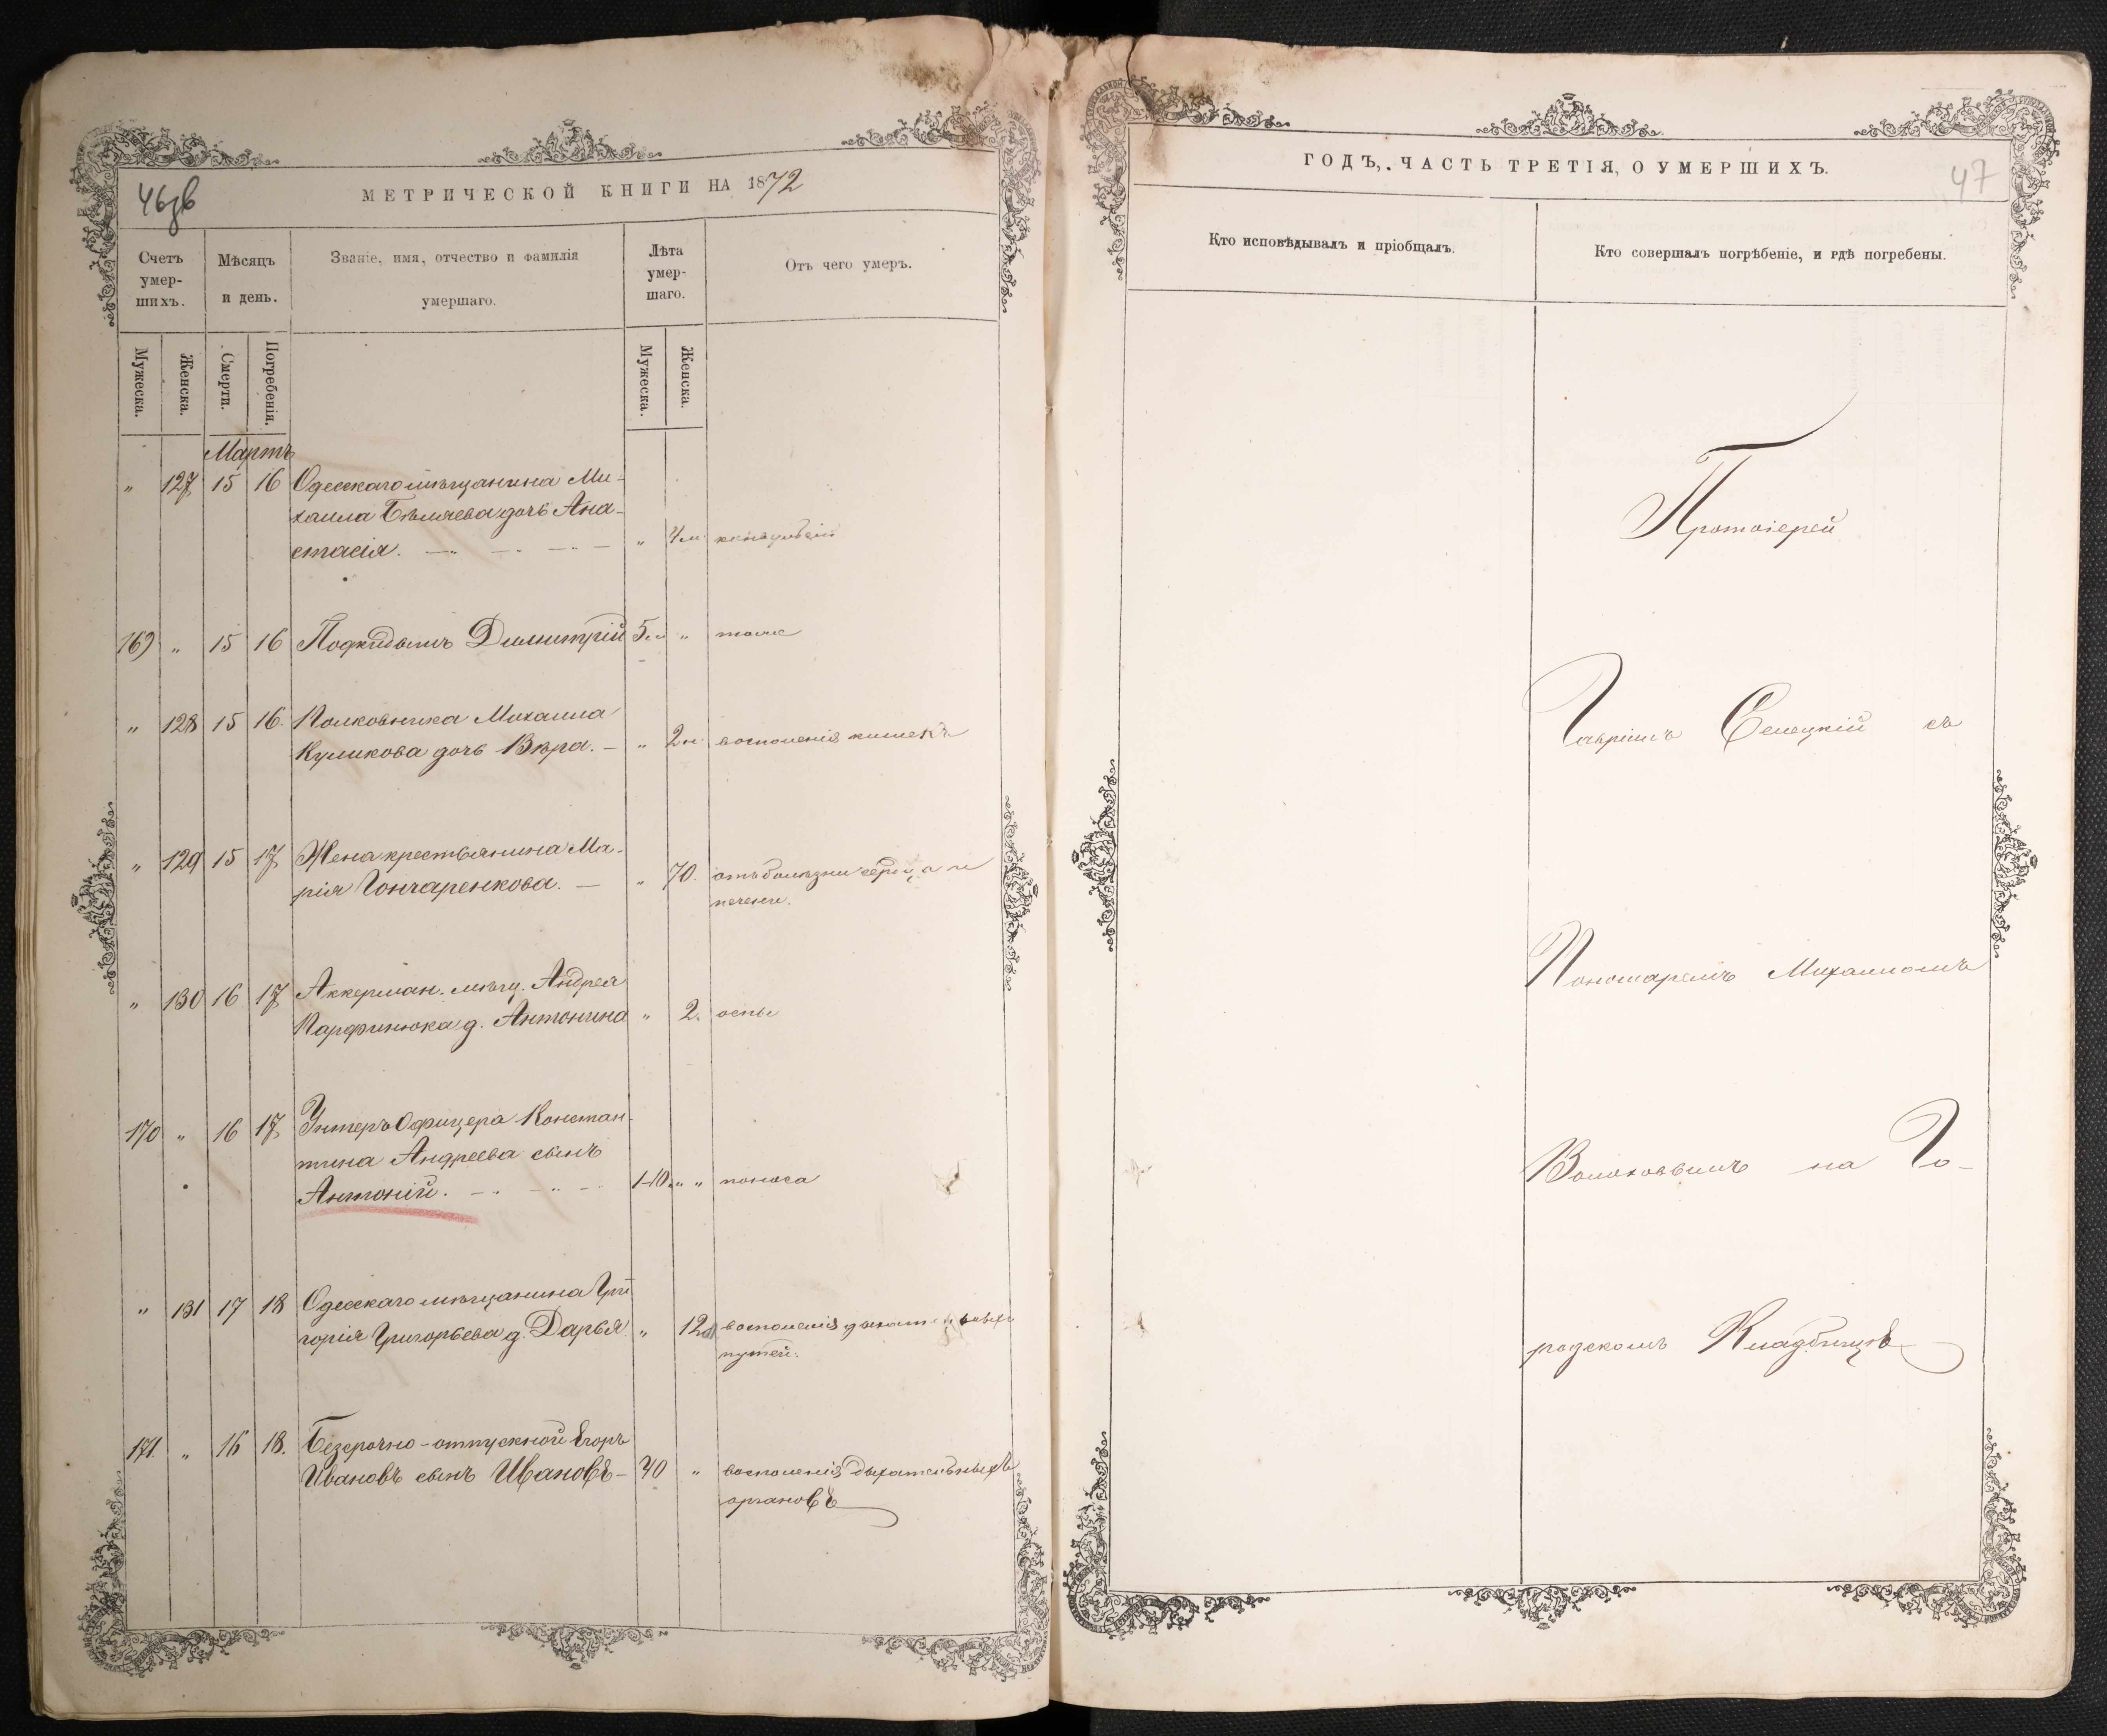 46зв
МЕТРИЧЕСКОЙ КНИГИ НА 1872
Счетъ умер-шихъ.
Мѣсяцъ и день.
Званіе, имя, отчество и фамилія умершаго.
Лѣта умер-шаго.
Отъ чего умеръ.
Мужеска.
Женска.
Смерти.
Погребенія.
Мужеска.
Женска.
Мартъ
„ 127 15 16 Одесскаго мѣщанина Ми-
хаила Бѣляева дочь Ана-
стасія. „ 4 м.
169 „ 15 16 Подкидышъ Димитрій 5 „ тоже
„ 128 15 16. Полковника Михаила
Куликова дочь Вѣра. – „ 2 воспаленія кишекъ
„ 129 15 17 Жена крестьянина Ма-
рія Гончаренкова. – „ 70. отъ болѣзни сердца и
печени.
„ 130 16 17 Аккерман. мѣщ. Андрея
Парфинюка д. Антонина „ 2. оспы
170 „ 16 17 Унтеръ Офицера Констан-
тина Андреева сынъ
Антоній. „ поноса
„ 131 17 18 Одесскаго мѣщанина Гри
горія Григорьева д. Дарья „ 12 воспаленія дыхательныхъ
путей.
171. „ 16 18. Безсрочно-отпускной Егоръ
Ивановъ сынъ Ивановъ – 40 „ воспаленія дыхательныхъ
органовъ
ГОДЪ, ЧАСТЬ ТРЕТІЯ, О УМЕРШИХЪ.
47
Кто исповѣдывалъ и пріобщалъ.
Кто совершалъ погрѣбеніе, и гдѣ погребены.
Протоіерей
Гавріилъ Селецкій съ
Пономаремъ Михаиломъ
Волоховымъ на Го-
родскомъ Кладбищѣ